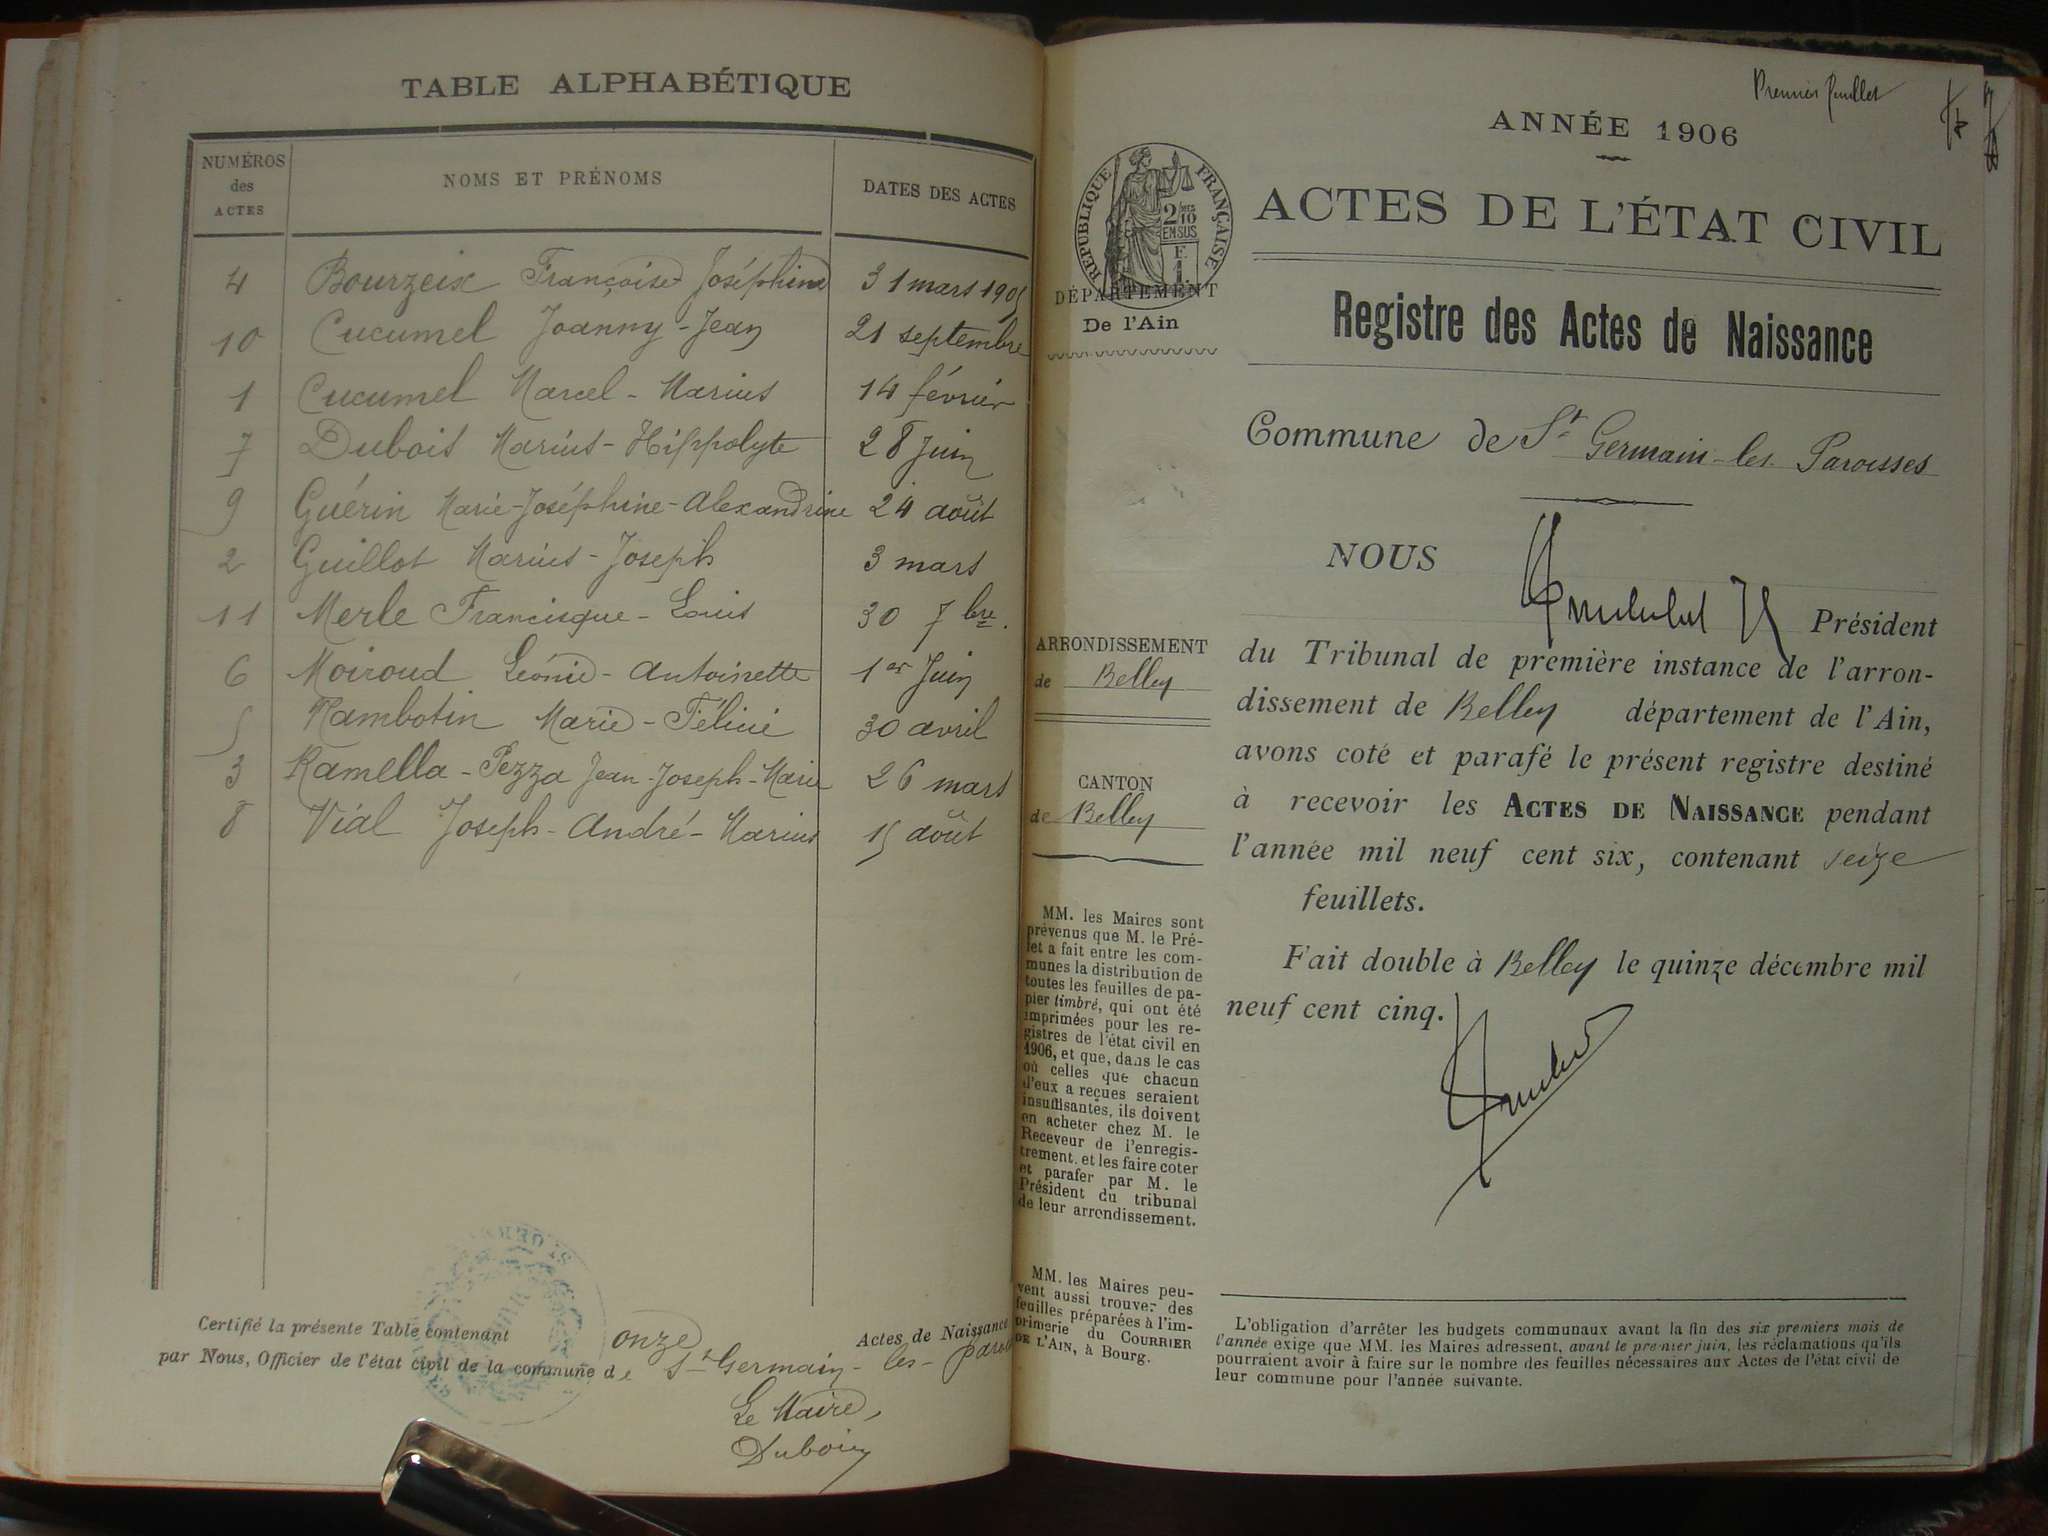 TABLE ALPHABÉTIQUE
NUMÉROS des ACTES
NOMS ET PRÉNOMS
DATES DES ACTES
4 Bourzeix Françoise Joséphine 31 mars 1905
10 Cucumel Joanny-Jean 21 septembre
1 Cucumel Marcel-Marius 14 février
7 Dubois Marius-Hippolyte 28 Juin
9 Guérin Marie-Joséphine-Alexandrine 24 août
2 Guillot Marius-Joseph 3 mars
11 Merle Francisque-Louis 30 7bre.
6 Moiroud Léonie-Antoinette 1er Juin
5 Rambotin Marie-Félicie 30 avril
3 Ramella-Pezza Jean-Joseph-Marie 26 mars
8 Vial Joseph-André-Marius 15 août
Certifié la présente Table contenant onze Actes de Naissance
par Nous, Officier de l'état civil de la commune de St Germain-les-
Le Maire,
Premier feuillet
ANNÉE 1906
RÉPUBLIQUE FRANÇAISE
2/10 EN SUS
F. 1.
ACTES DE L'ÉTAT CIVIL
DÉPARTEMENT
De l'Ain
Registre des Actes de Naissance
Commune de St Germain-les-Paroisses
NOUS
Président
ARRONDISSEMENT
de Belley
CANTON
de Belley
du Tribunal de première instance de l'arron-
dissement de Belley département de l'Ain,
avons coté et parafé le présent registre destiné
à recevoir les ACTES DE NAISSANCE pendant
l'année mil neuf cent six, contenant seize
feuillets.
Fait double à Belley le quinze décembre mil
neuf cent cinq.
MM. les Maires sont
prévenus que M. le Pré-
fet a fait entre les com-
munes la distribution de
toutes les feuilles de pa-
pier timbré, qui ont été
imprimées pour les re-
gistres de l'état civil en
1906, et que, dans le cas
où celles que chacun
d'eux a reçues seraient
insuffisantes, ils doivent
en acheter chez M. le
Receveur de l'enregis-
trement, et les faire coter
et parafer par M. le
Président du tribunal
de leur arrondissement.
MM. les Maires peu-
vent aussi trouver des
feuilles préparées à l'im-
primerie du COURRIER
DE L'AIN, à Bourg.
L'obligation d'arrêter les budgets communaux avant la fin des six premiers mois de
l'année exige que MM. les Maires adressent, avant le premier juin, les réclamations qu'ils
pourraient avoir à faire sur le nombre des feuilles nécessaires aux Actes de l'état civil de
leur commune pour l'année suivante.